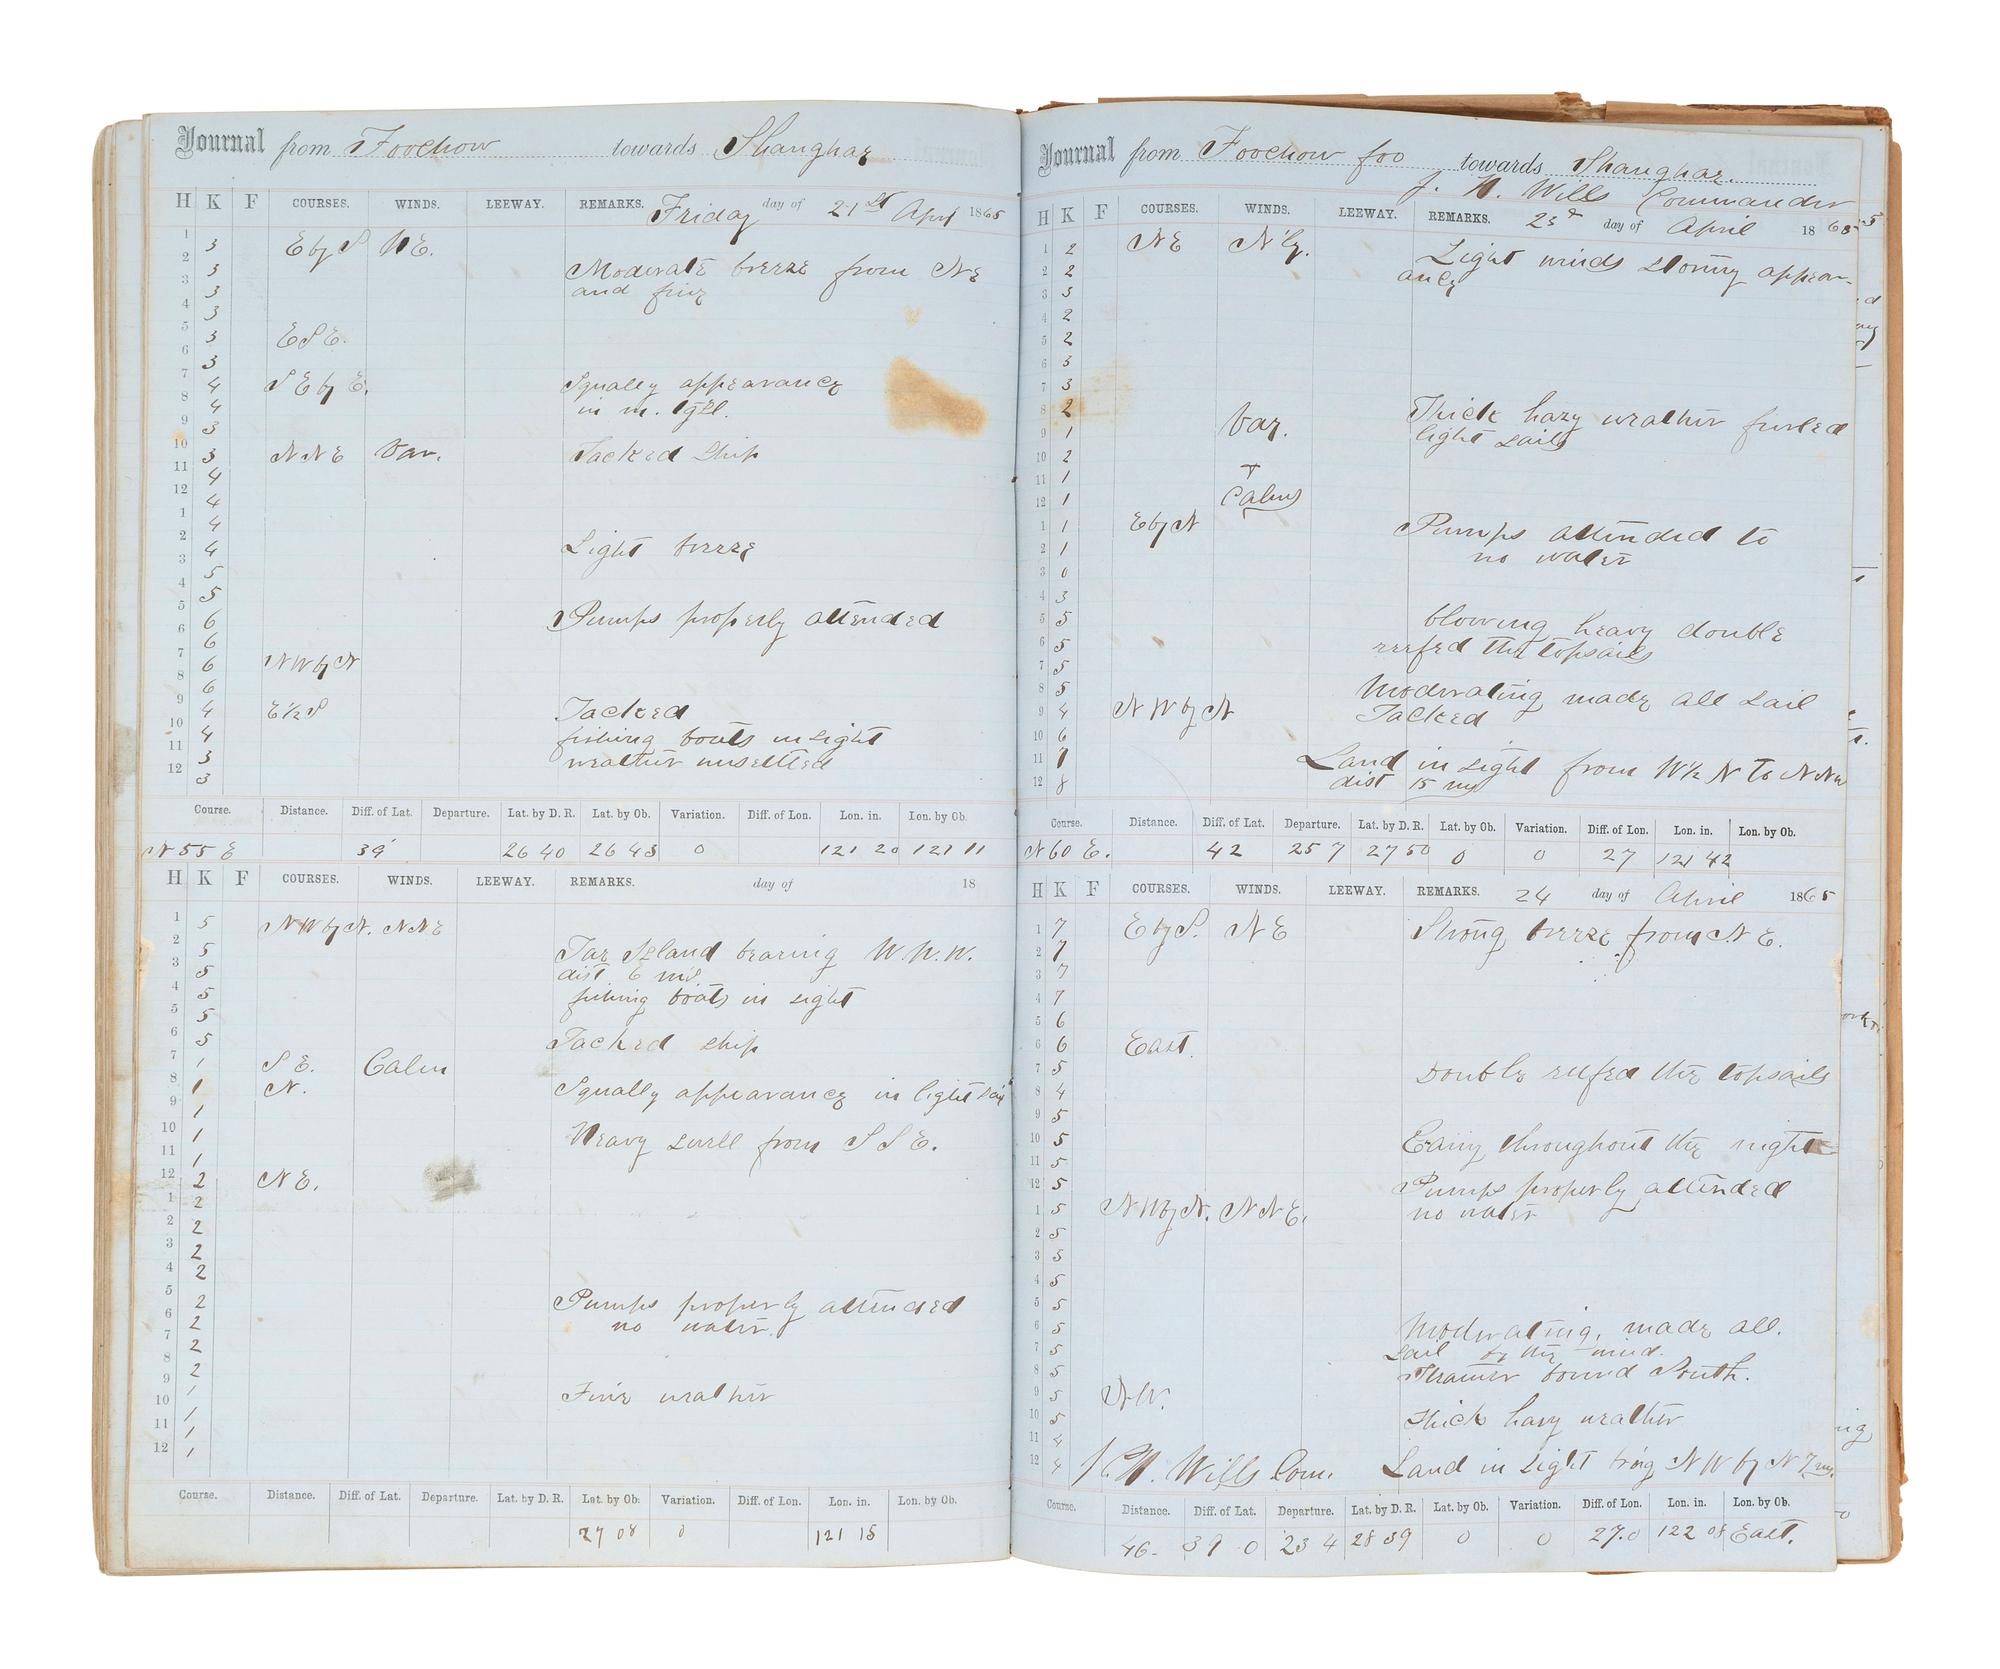 Journal from Foochow towards Shanghae
H K F COURSES. WINDS. LEEWAY. REMARKS. Friday day of 21st April 1865
1 3 E by S NE.
2 3 Moderate breeze from NE
3 3 and fine
4 3
5 3 ESE.
6 3
7 4 S E by E. Squally appearance
8 4 in
3
10 3 NNE Var. Tacked Ship
11 4
12 4
1 4
2 4 Light breeze
3 5
4 5
5 6 Pumps properly attended
6 6
7 6 NW by N
8 6
9 4 E 1/2 S Tacked
10 4 fishing boats in sight
11 3 weather unsettled
12 3
Course. Distance. Diff. of Lat. Departure. Lat. by D. R. Lat. by Ob. Variation. Diff. of Lon. Lon. in. Lon. by Ob.
N 55 E 39 26 40 26 43 0 121 20 121 11
H K F COURSES. WINDS. LEEWAY. REMARKS. day of 18
1 5 NW by N. NNE
2 5 Island bearing W.N.W.
3 5 dist 6 mls
4 5 fishing boats in sight
5 5
6 5 Tacked ship
7 1 S E. Calm
8 1 N. Squally appearance in light sail
9 1
10 1 Heavy swell from S S E.
11 1
12 2 NE.
1 2
2 2
3 2
4 2
5 2 Pumps properly attended
6 2 no water
7 2
8 2
9 1 Fine weather
10 1
11 1
12 1
Course. Distance. Diff. of Lat. Departure. Lat. by D. R. Lat. by Ob. Variation. Diff. of Lon. Lon. in. Lon. by Ob.
27 08 0 121 15
Journal from Foochow foo towards Shanghae.
J. W. Wills Commander
H K F COURSES. WINDS. LEEWAY. REMARKS. 23d day of April 1865
1 2 NE N'ly. Light winds stormy appear-
2 2 ance
3 3
4 2
5 2
6 3
7 3
8 2 Thick hazy weather furled
9 1 Var. light sails
10 2
11 1
12 1 Calms
1 1 E by N Pumps attended to
2 1 no water
3 0
4 3
5 5 blowing heavy double
6 5 reefed the topsails
7 5
8 5 Moderating made all sail
9 4 NW by N Tacked
10 6
11 1 Land in sight from W 1/2 N To NNW
12 8 dist 15 mls
Course. Distance. Diff. of Lat. Departure. Lat. by D. R. Lat. by Ob. Variation. Diff. of Lon. Lon. in. Lon. by Ob.
N 60 E. 42 25 7 27 50 0 0 27 121 42
H K F COURSES. WINDS. LEEWAY. REMARKS. 24 day of April 1865
1 7 E by S. NE Strong breeze from N E.
2 7
3 7
4 7
5 6
6 6 East.
7 5 Double reefed the topsails
8 4
9 5
10 5 throughout the night
11 5
12 5 Pumps properly attended
1 5 NW by N. NNE. no water
2 5
3 5
4 5
5 5
6 5 Moderating, made all.
7 5 sail by the wind.
8 5 Steamer bound South.
9 5 NW.
10 5 Thick hazy weather
11 4
12 4 J. W. Wills Com. Land in sight br'ng NW by N 7 mls.
Course. Distance. Diff. of Lat. Departure. Lat. by D. R. Lat. by Ob. Variation. Diff. of Lon. Lon. in. Lon. by Ob.
46 39 0 23 4 28 39 0 0 27.0 122 08 East.